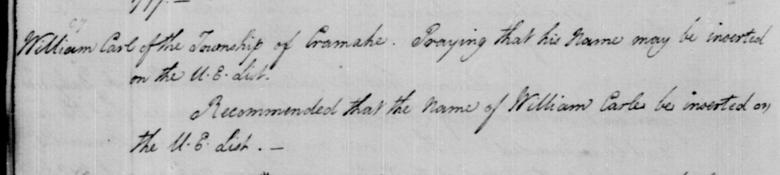 William Carl of the Township of Cramahe. Praying that his Name may be inserted
on the U.E. List.
Recommended that the Name of William Carle be inserted on
the U.E. List. —